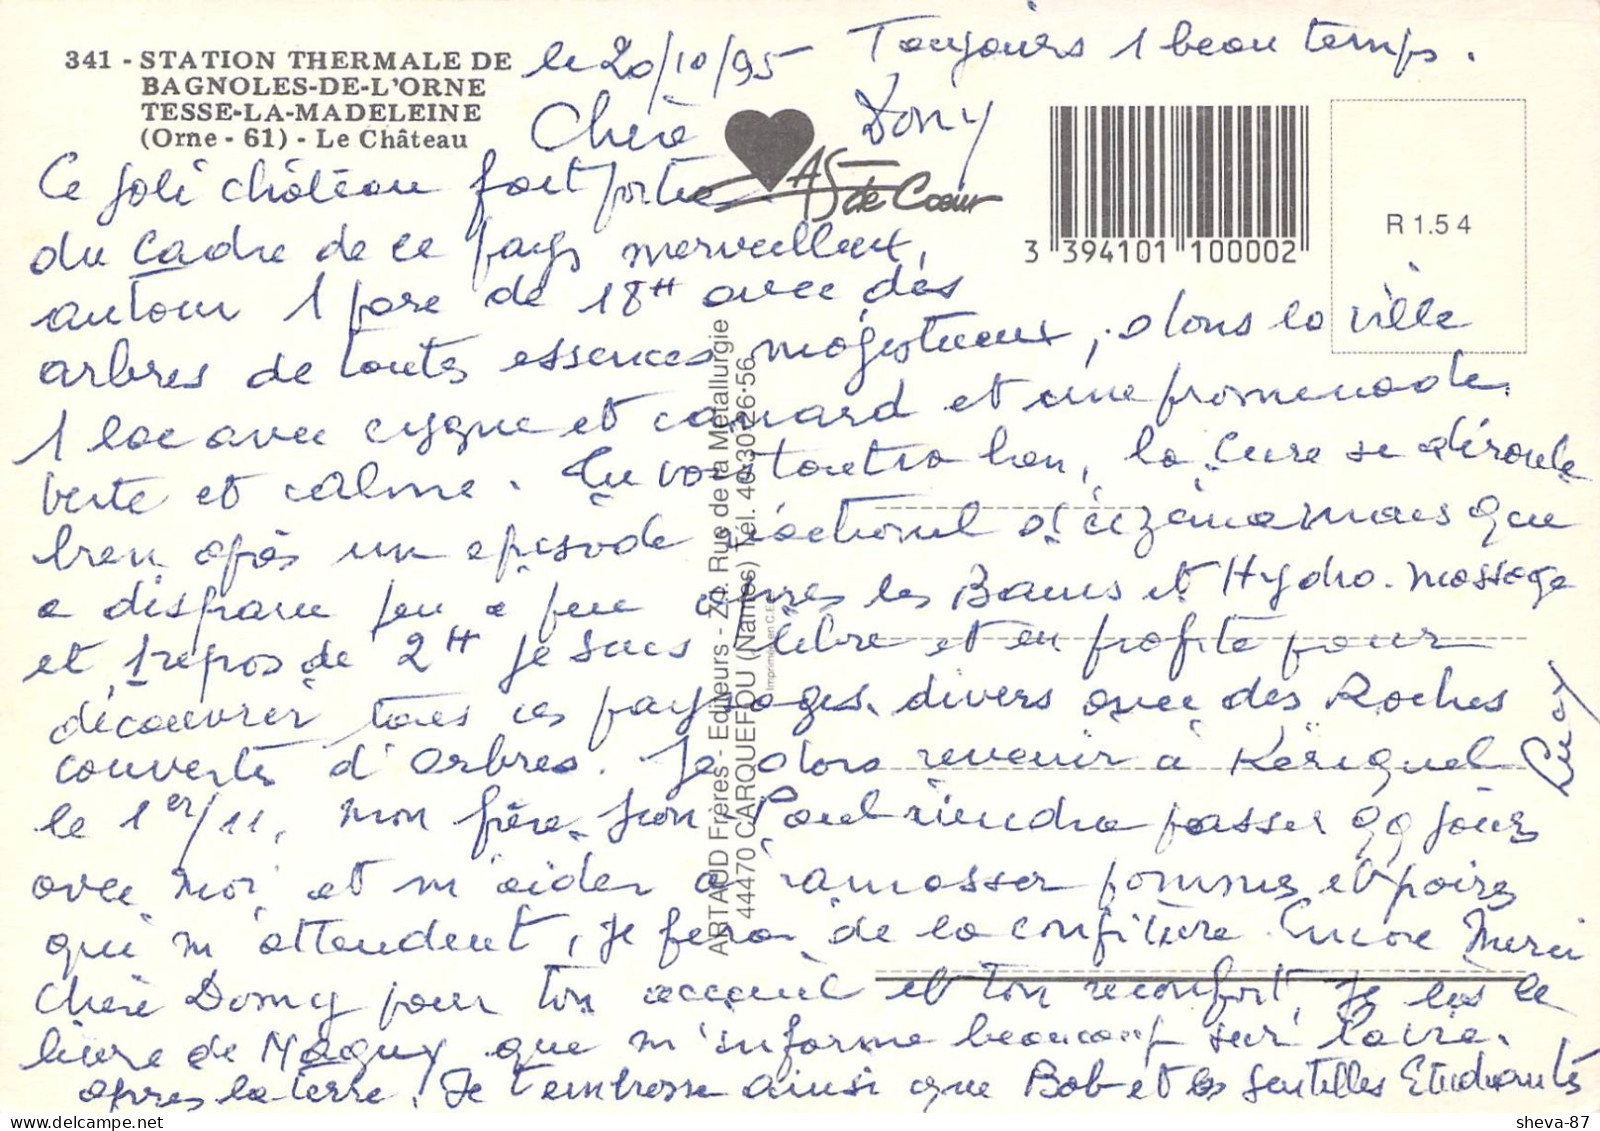 341 - STATION THERMALE DE
BAGNOLES-DE-L'ORNE
TESSE-LA-MADELEINE
(Orne - 61) - Le Château
le 20/10/95 Toujours 1 beau temps.
Chère Domy
AS de Coeur
3 394101 100002
R 1.54
Ce joli château fait partie
du cadre de ce pays merveilleux,
autour 1 parc de 18 H avec des
arbres de toutes essences majestueux, dans la ville
1 lac avec cygne et canard et une promenade
verte et calme. Tu vois tout va bien, la Cure se déroule
bien après un episode réactionnel d'eczéma mais que
a disparu peu à peu après les Bains et Hydro-massage
et 1 repos de 2 H je suis libre et en profite pour
découvrir tous ces paysages divers avec des Roches
couvertes d'arbres. Je dois revenir à Kériquel
le 1er/11, mon frère Jean Paul viendra passer qq jours
avec moi et m'aider à ramasser pommes et poires
qui m'attendent, je ferai de la confiture. Encore Merci
chère Domy pour ton accueil et ton réconfort, Je lis le
livre de Maguy que m'informe beaucoup sur la vie
après la terre. Je t'embrasse ainsi que Bob et les gentilles Etudiantes
ARTAUD Frères - Editeurs - ZI. Rue de la Métallurgie
44470 CARQUEFOU (Nantes) Tél. 40·30·26·56
Imprimé en C.E.E.
sheva-87